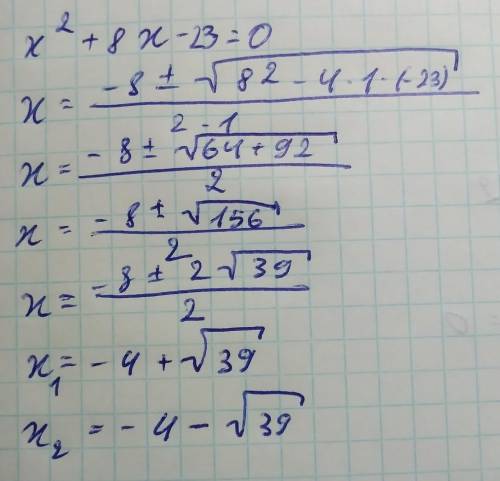 x² + 8x - 23 = 0
x = (-8 ± √(8² - 4 · 1 · (-23))) / (2 · 1)
x = (-8 ± √(64 + 92)) / 2
x = (-8 ± √156) / 2
x = (-8 ± 2√39) / 2
x₁ = -4 + √39
x₂ = -4 - √39